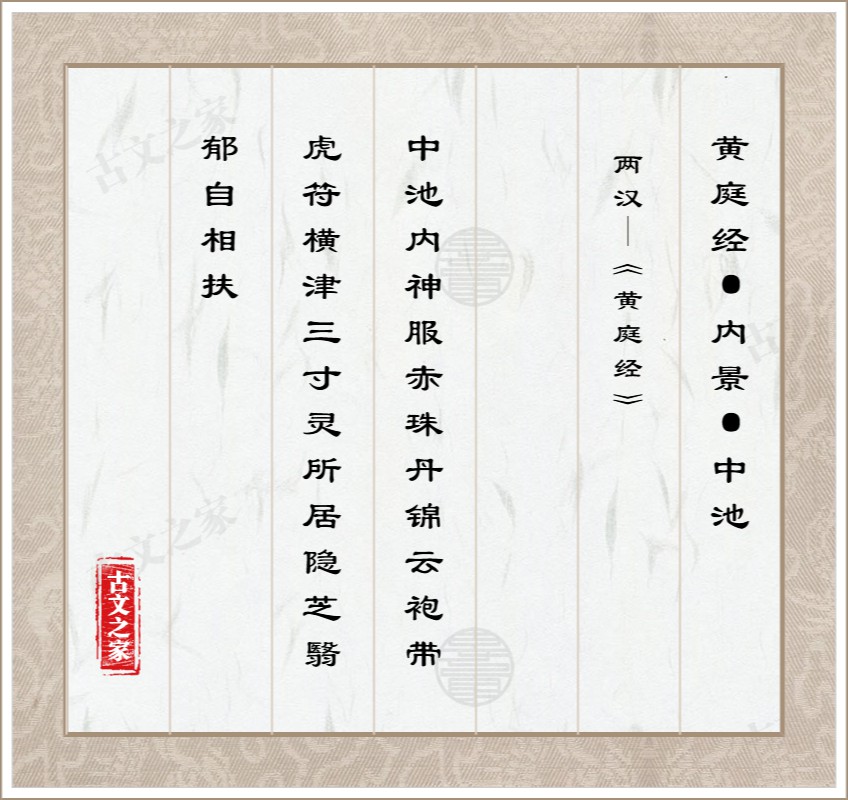 黄庭经●内景●中池
两汉—《黄庭经》
中池内神服赤珠丹锦云袍带
虎符横津三寸灵所居隐芝翳
郁自相扶
古文之家
古文之家
古文之家